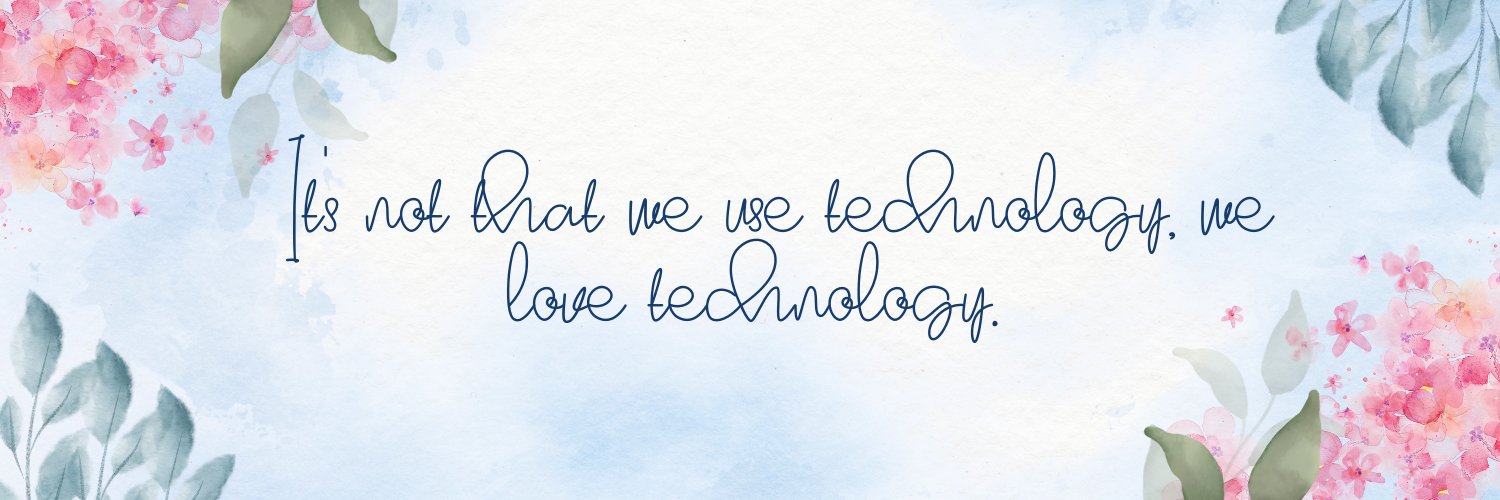 It's not that we use technology, we
love technology.